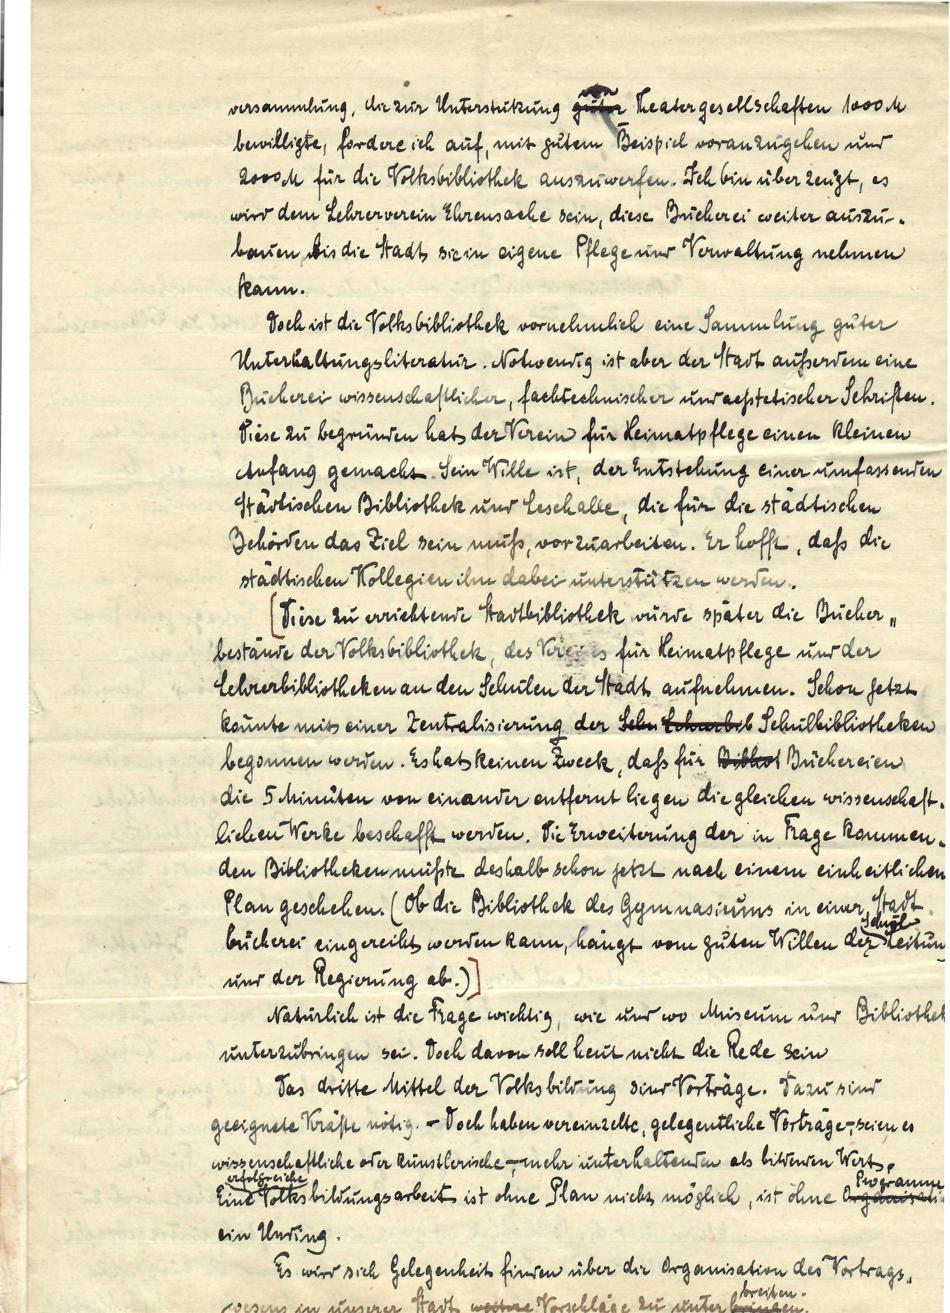 versammlung, die zur Unterstützung guter Theatergesellschaften 1000 M
bewilligte, fordere ich auf, mit gutem Beispiel voranzugehen und
2000 M für die Volksbibliothek auszuwerfen. Ich bin überzeugt, es
wird dem Lehrerverein Ehrensache sein, diese Bücherei weiter auszu-
bauen bis die Stadt sie in eigene Pflege und Verwaltung nehmen
kann.
Doch ist die Volksbibliothek vornehmlich eine Sammlung guter
Unterhaltungsliteratur. Notwendig ist aber der Stadt außerdem eine
Bücherei wissenschaftlicher, fachtechnischer und aesthetischer Schriften.
Diese zu begründen hat der Verein für Heimatpflege einen kleinen
Anfang gemacht. Sein Wille ist, der Entstehung einer umfassenden
Städtischen Bibliothek und Lesehalle, die für die städtischen
Behörden das Ziel sein muß, vorzuarbeiten. Er hofft, daß die
städtischen Kollegien ihn dabei unterstützen werden.
[Diese zu errichtende Stadtbibliothek würde später die Bücher„
bestände der Volksbibliothek, des Vereines für Heimatpflege und der
Lehrerbibliotheken an den Schulen der Stadt aufnehmen. Schon jetzt
könnte mit einer Zentralisierung der Schulbibliotheken
begonnen werden. Es hat keinen Zweck, daß für Biblioth Büchereien
die 5 Minuten von einander entfernt liegen die gleichen wissenschaft-
lichen Werke beschafft werden. Die Erweiterung der in Frage kommen-
den Bibliotheken müßte deshalb schon jetzt nach einem einheitlichen
Plan geschehen. (Ob die Bibliothek des Gymnasiums in einer Stadt
bücherei eingereiht werden kann, hängt vom guten Willen der Schulleitun
und der Regierung ab.)]
Natürlich ist die Frage wichtig, wie und wo Museum und Bibliothek
unterzubringen sei. Doch davon soll heut nicht die Rede sein
Das dritte Mittel der Volksbildung sind Vorträge. Dazu sind
geeignete Kräfte nötig. – Doch haben vereinzelte, gelegentliche Vorträge, – seien es
wissenschaftliche oder künstlerische –, mehr unterhaltenden als bildenden Wert.
Eine erfolgreiche Volksbildungsarbeit ist ohne Plan nicht möglich, ist ohne Organisati Programm
ein Unding.
Es wird sich Gelegenheit finden über die Organisation des Vortrags„
wesens in unserer Stadt weitere Vorschläge zu unterbreiten.